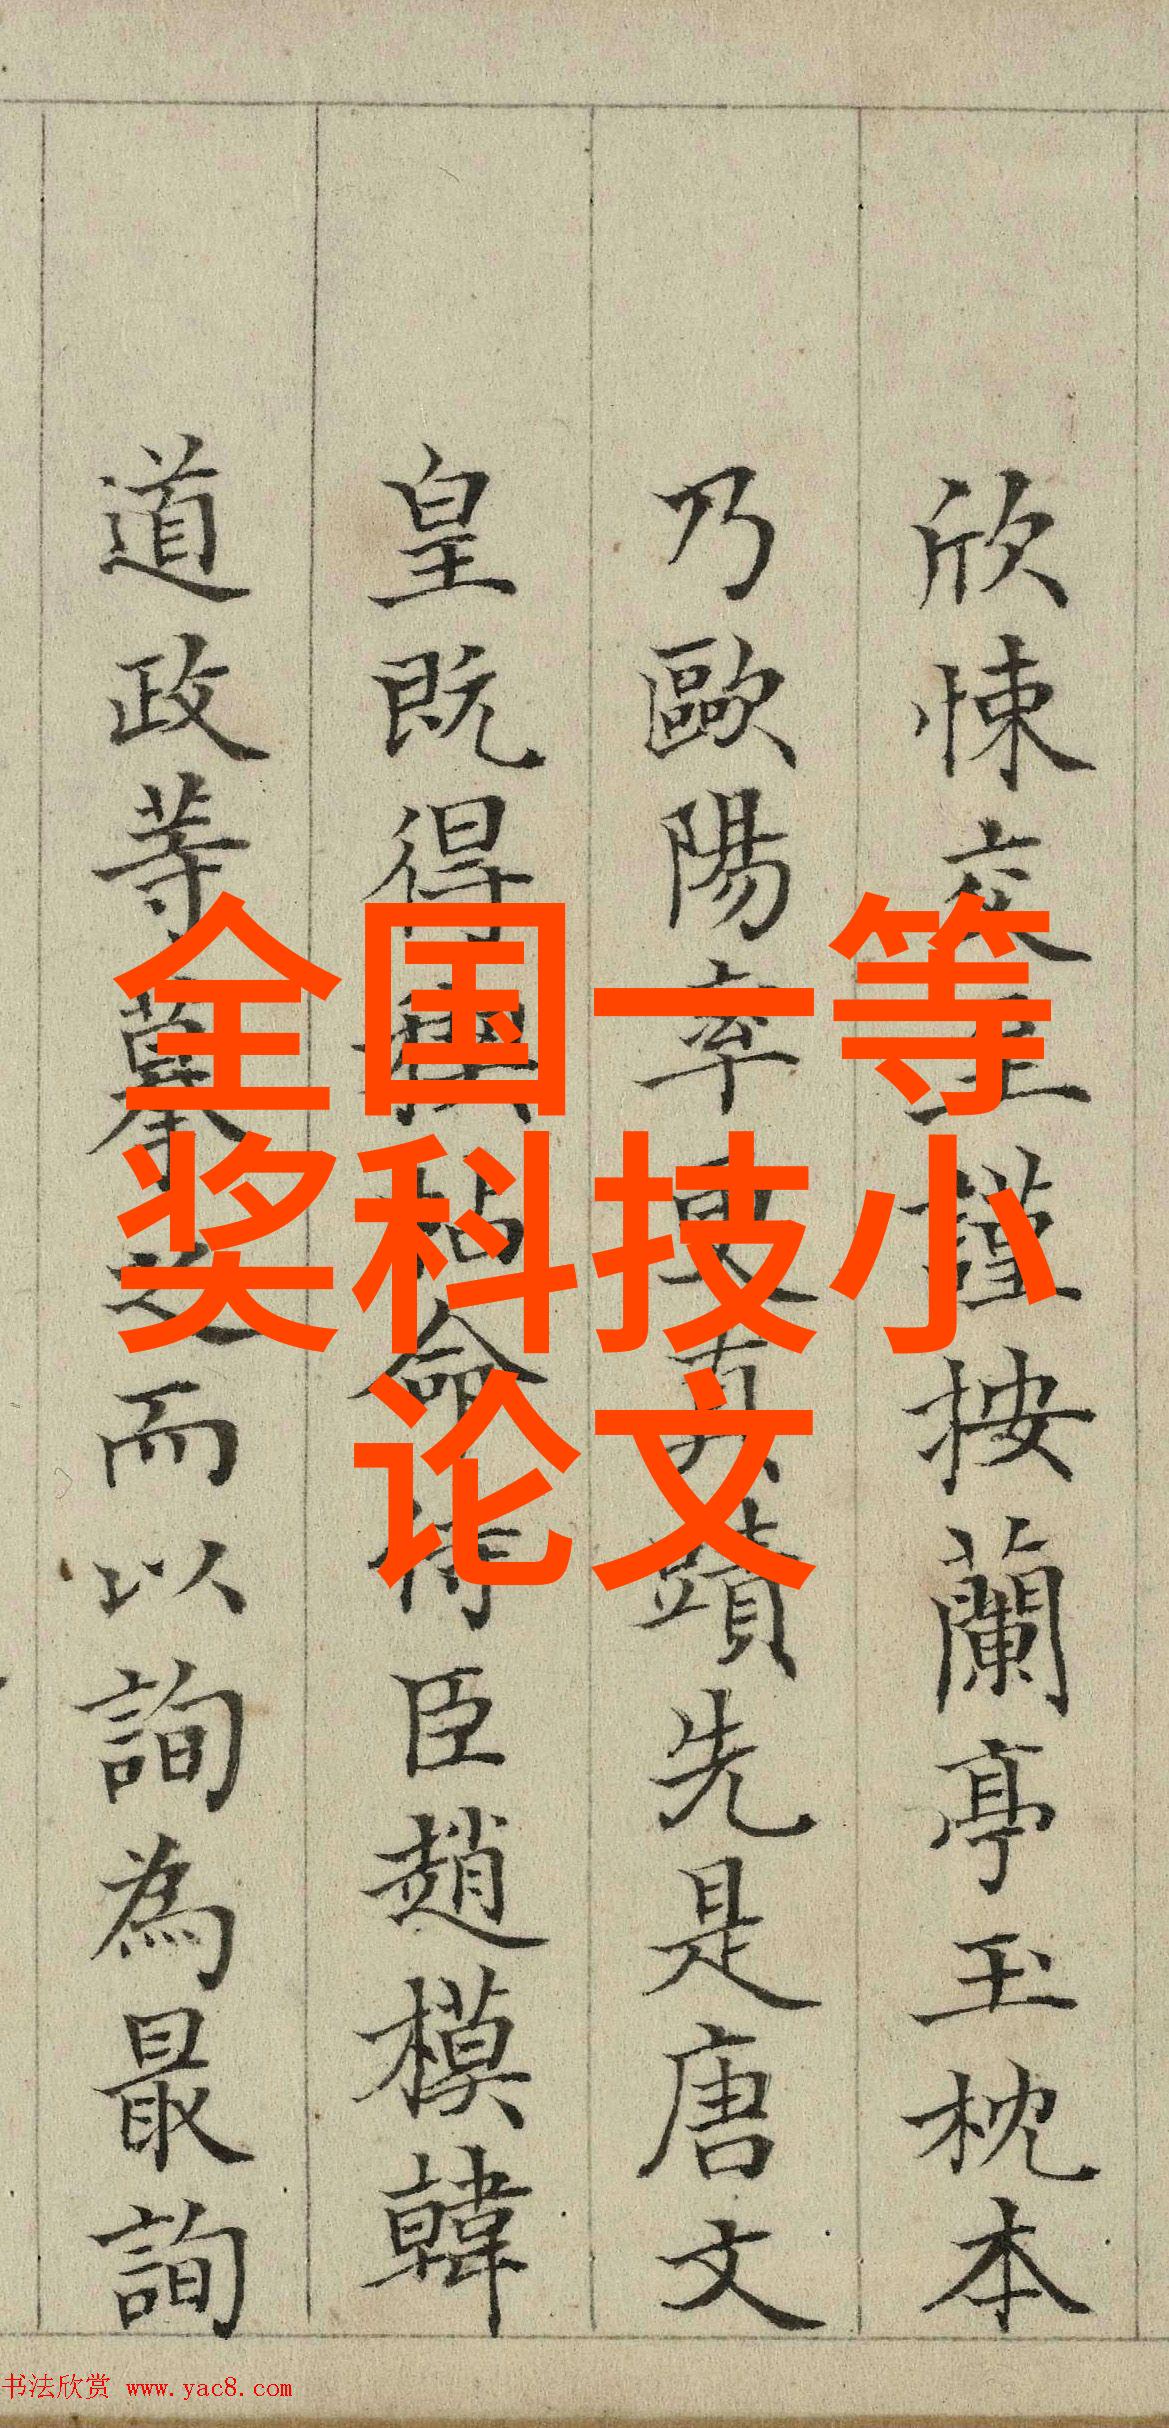 欣悚交至謹按蘭亭玉枕本
乃歐陽率更真蹟先是唐文
皇既得稧帖命侍臣趙模韓
道政等摹之而以詢為最詢
全国一等
奖科技小
论文
书法欣赏 www.yac8.com